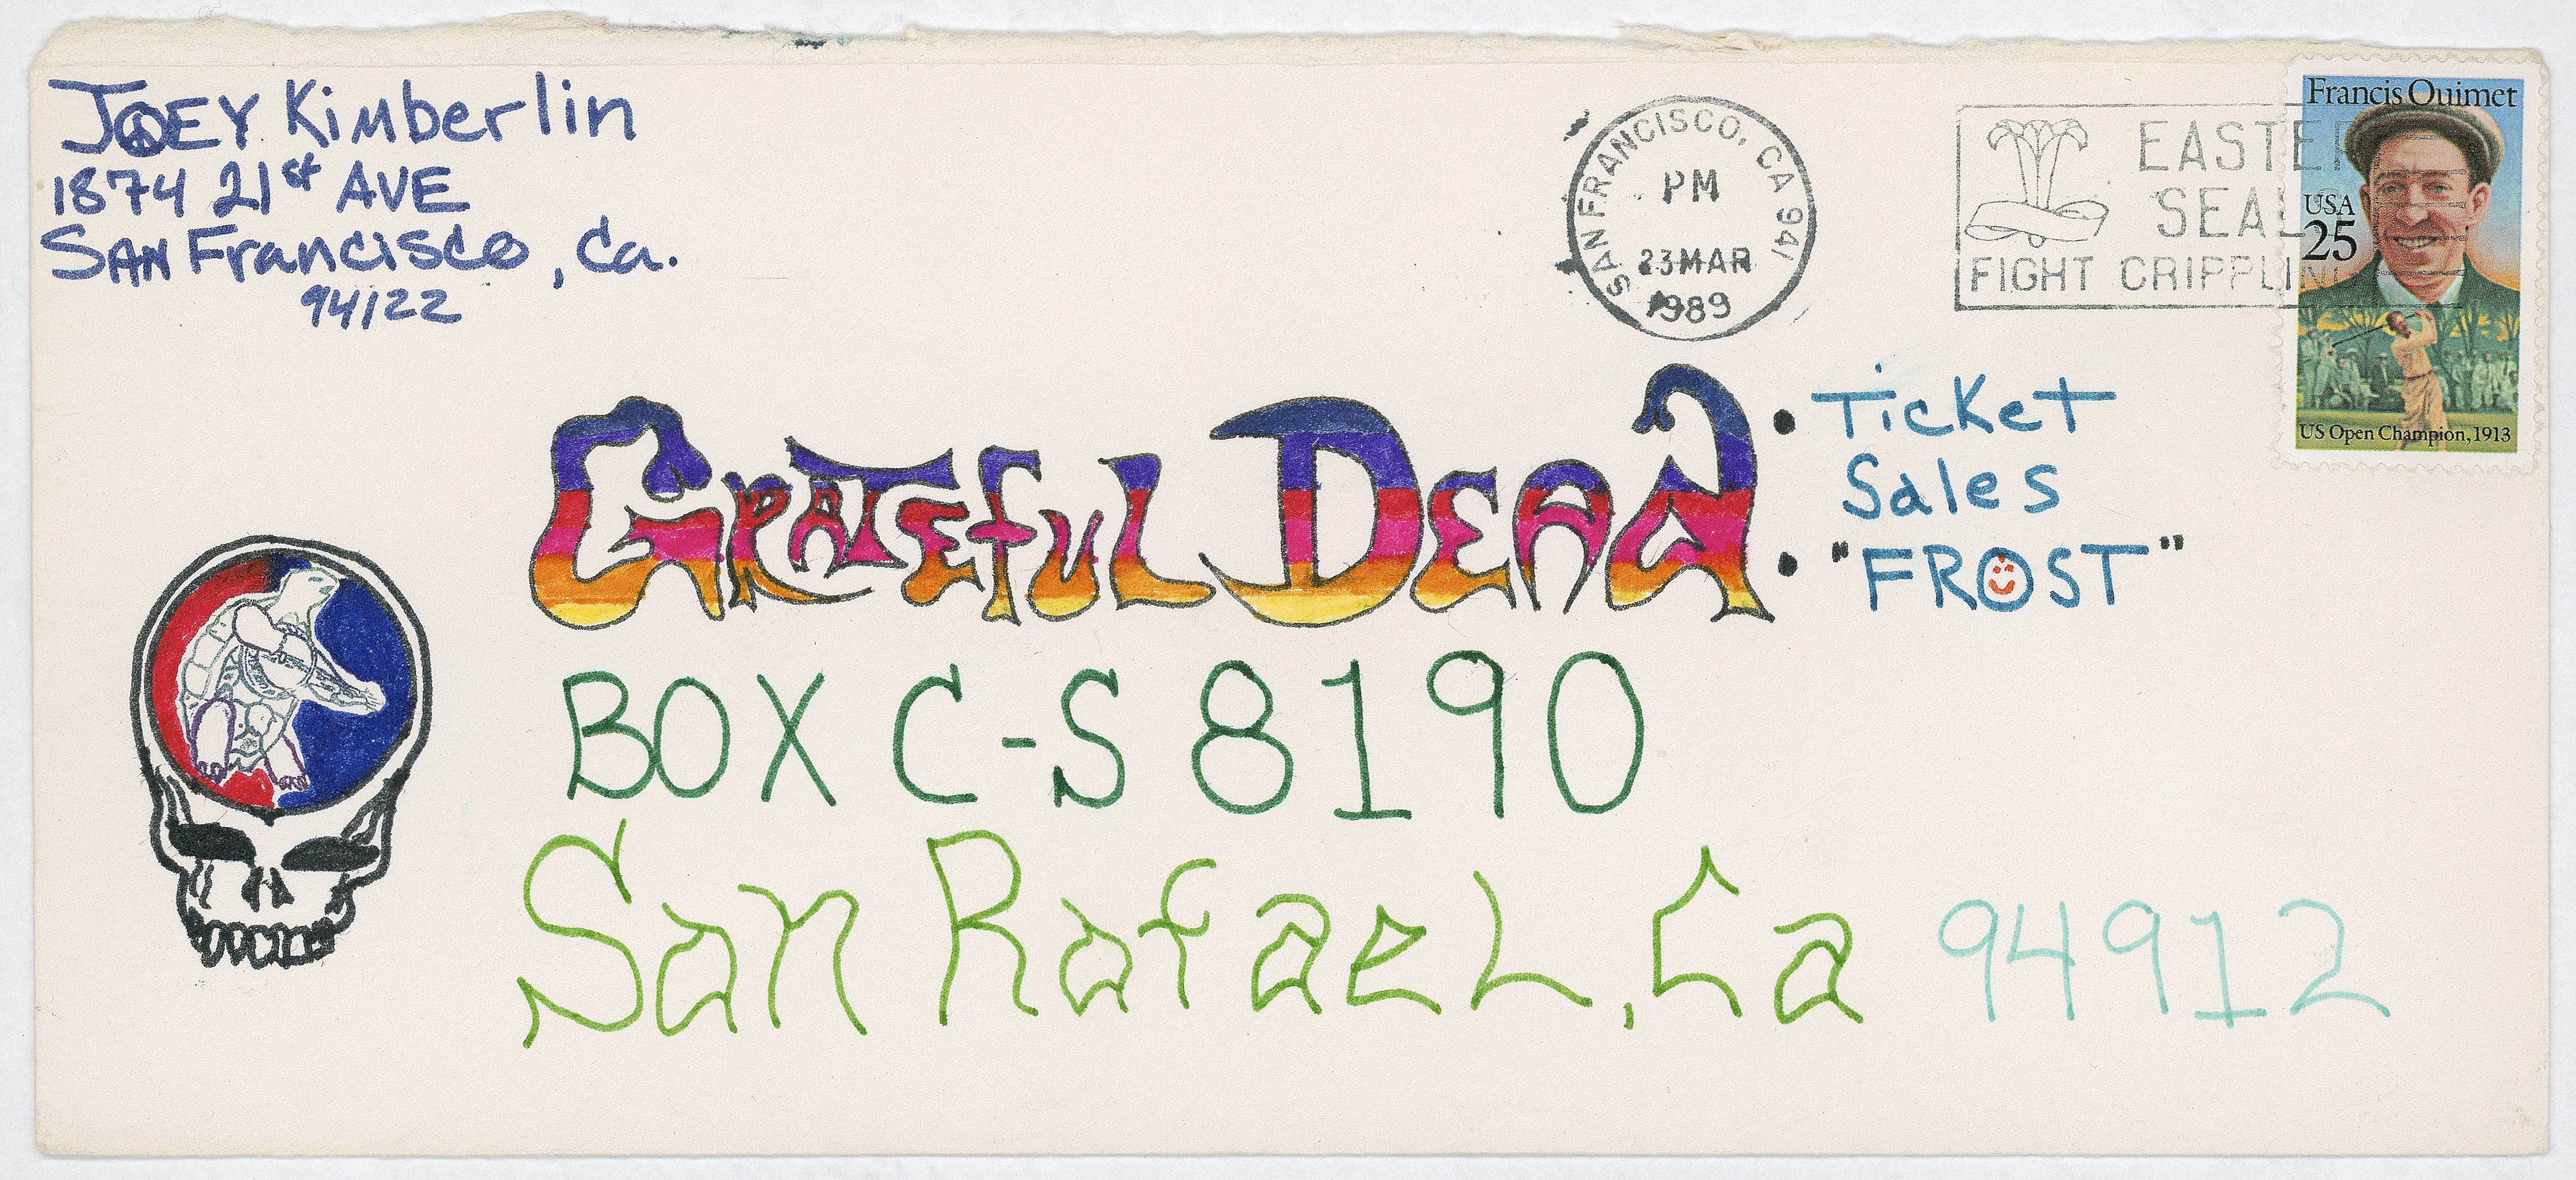 JOEY Kimberlin
1874 21st AVE
SAN Francisco, Ca.
94122
SAN FRANCISCO, CA 941
PM
23MAR
1989
EASTER
SEAL
FIGHT CRIPPLIN
Francis Ouimet
USA
25
US Open Champion, 1913
GRATEFUL DEAD : Ticket
Sales
"FROST"
BOX C-S 8190
San RafaeL, Ca 94912